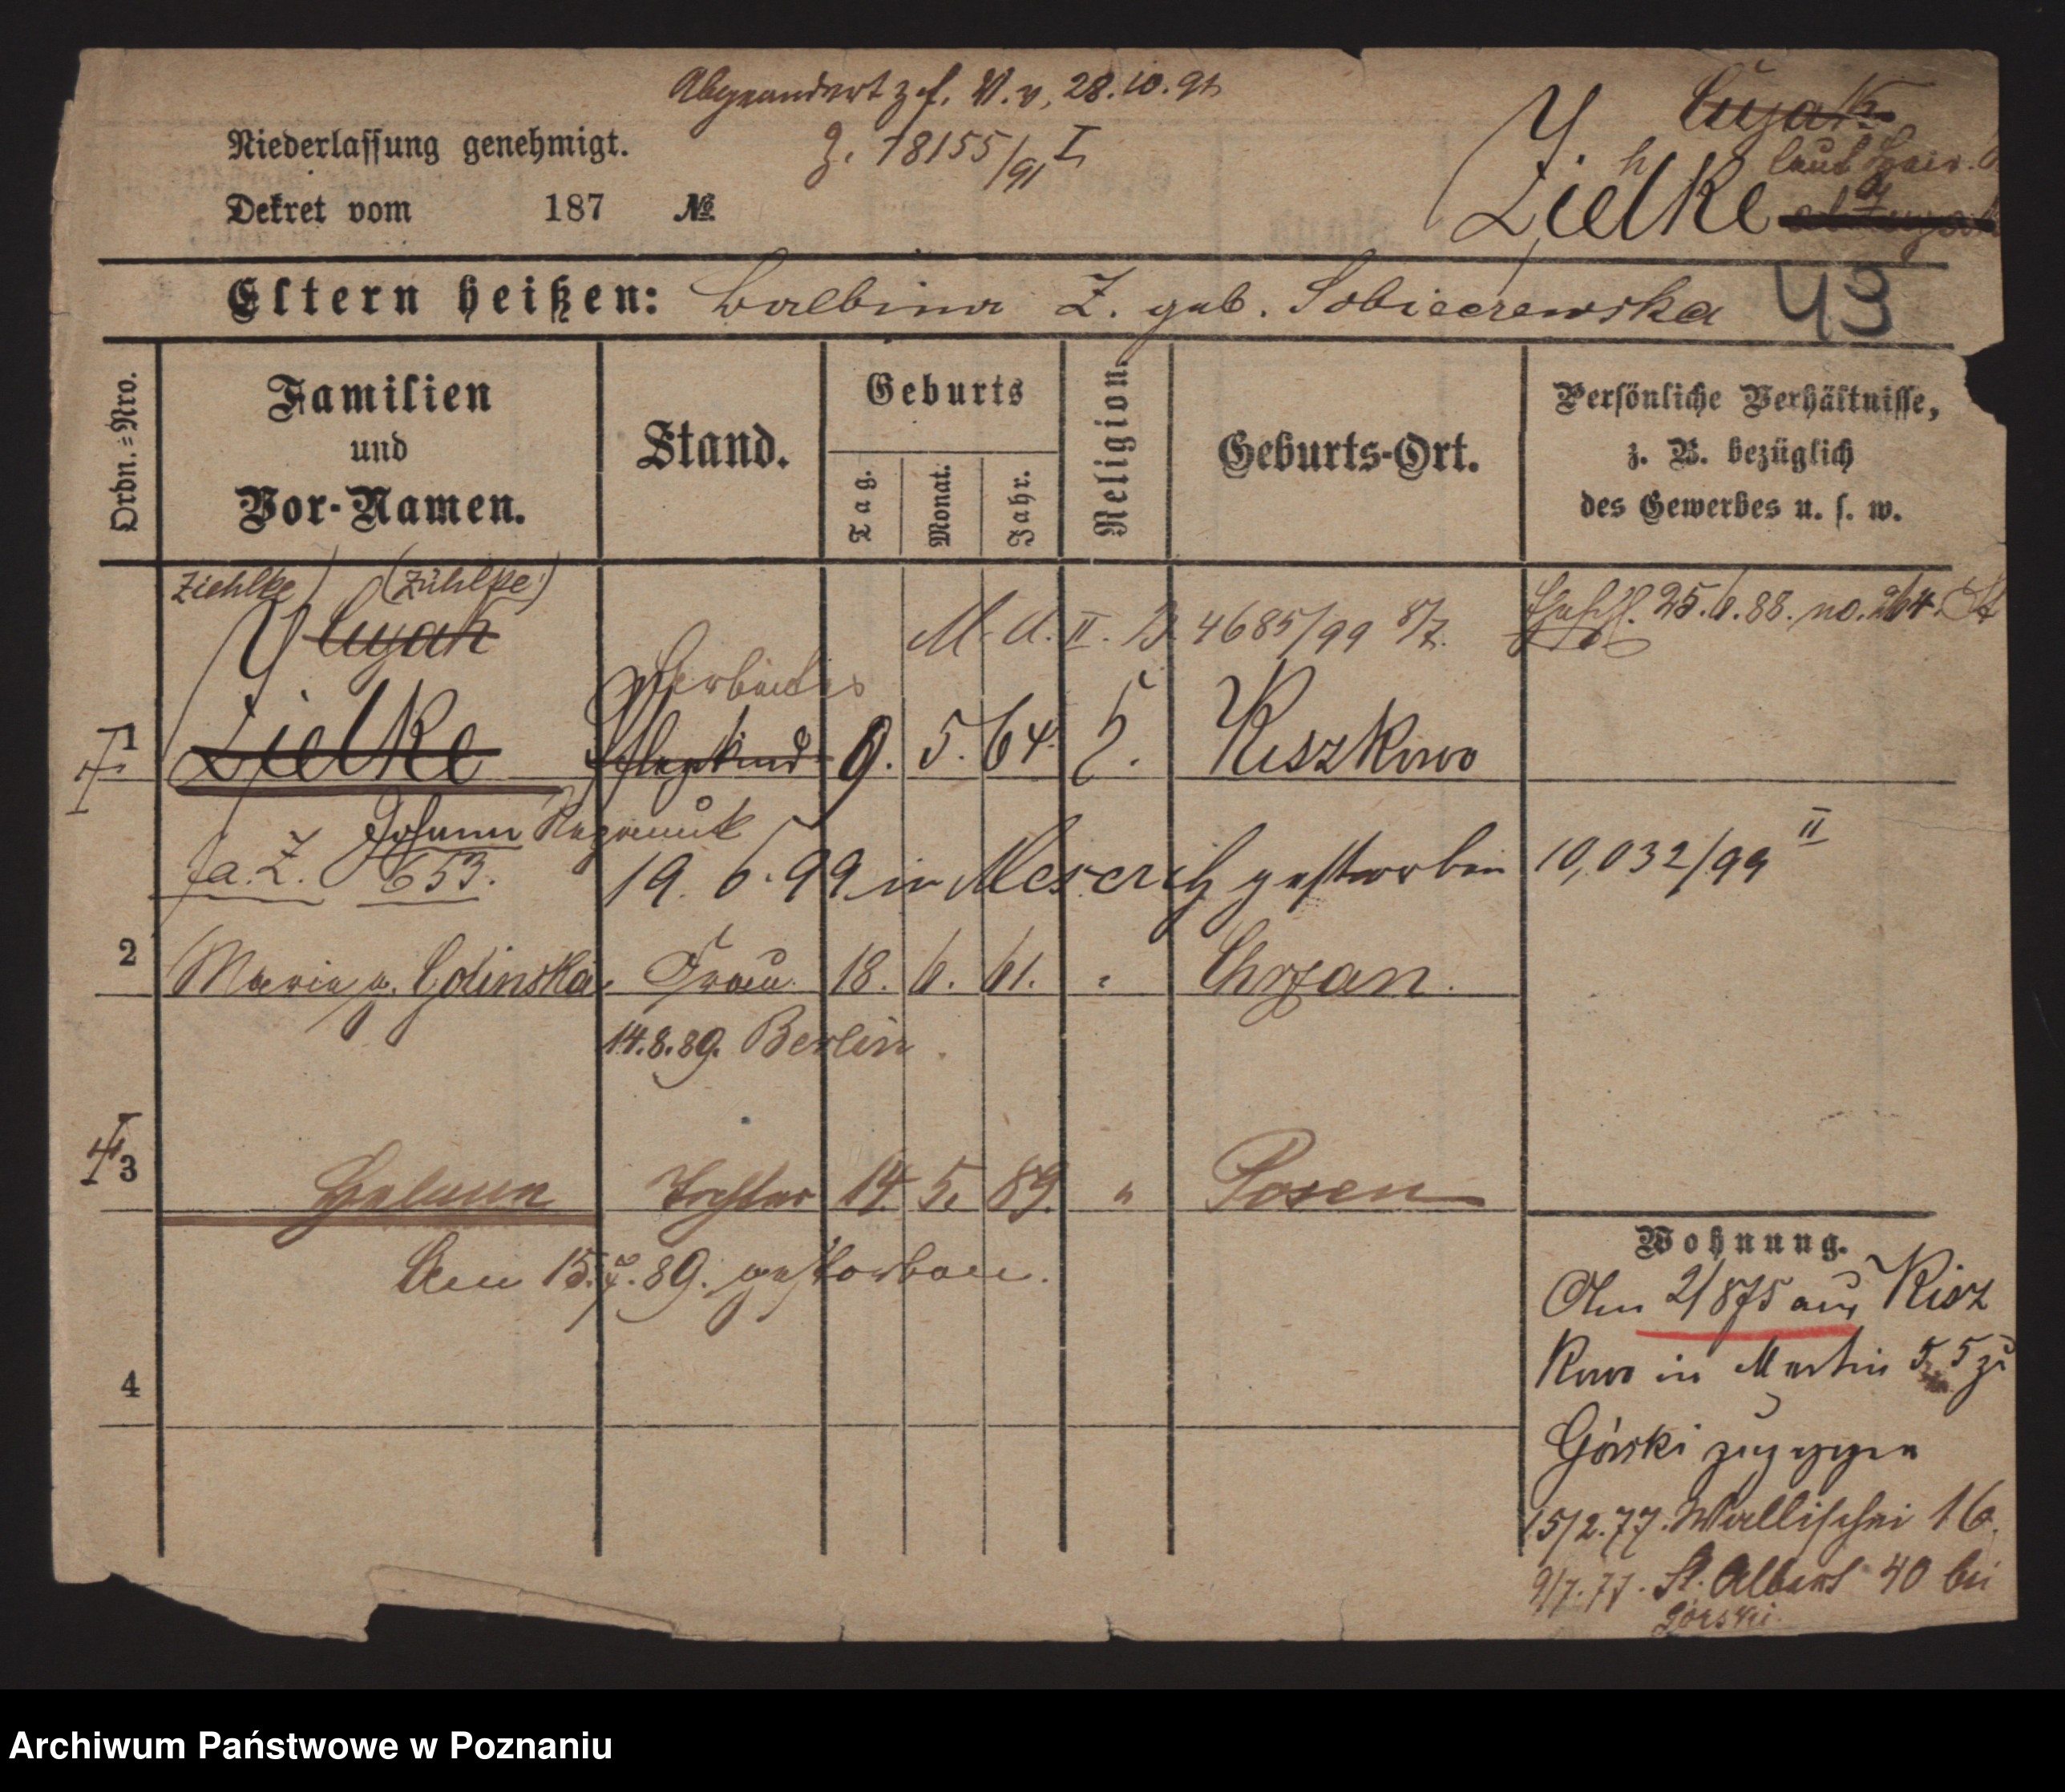 Abgeaendert z f. V. v. 28.10.91
Z. 18155/91 I
Niederlassung genehmigt.
Dekret vom 187 №.
Cujak
h laut
Zielke
Eltern heißen: Balbina Z. geb. Sobieerewska
43
Ordn.=Nro.
Familien
und
Vor-Namen.
Stand.
Geburts
Tag.
Monat.
Jahr.
Religion.
Geburts-Ort.
Persönliche Verhältnisse,
z. B. bezüglich
des Gewerbes u. s. w.
Ziehlke (Zühlke)
Cujak
M. d. II. B. 4685/99 8/7.
25.6.88. no. 264.
1 Zielke Pflegekind 9. 5. 64. Kiszkowo
Johann
a. Z. 653.
19. 6. 99 in Meseritz gestorben 10,032/99 II
2 Maria g. Golinska Frau 18. 6. 61. " Chrzan.
14.8.89. Berlin.
3 Helene Tochter 14. 5. 89. " Posen
Am 15.7.89. gestorben.
4
Wohnung.
Am 2/875 aus Kisz
kowo in Martin 55 zu
Górski zugezogen
15/2.77. Wallischei 16.
9/7.77. St. Adalbert 40 bei
Górski.
Archiwum Państwowe w Poznaniu